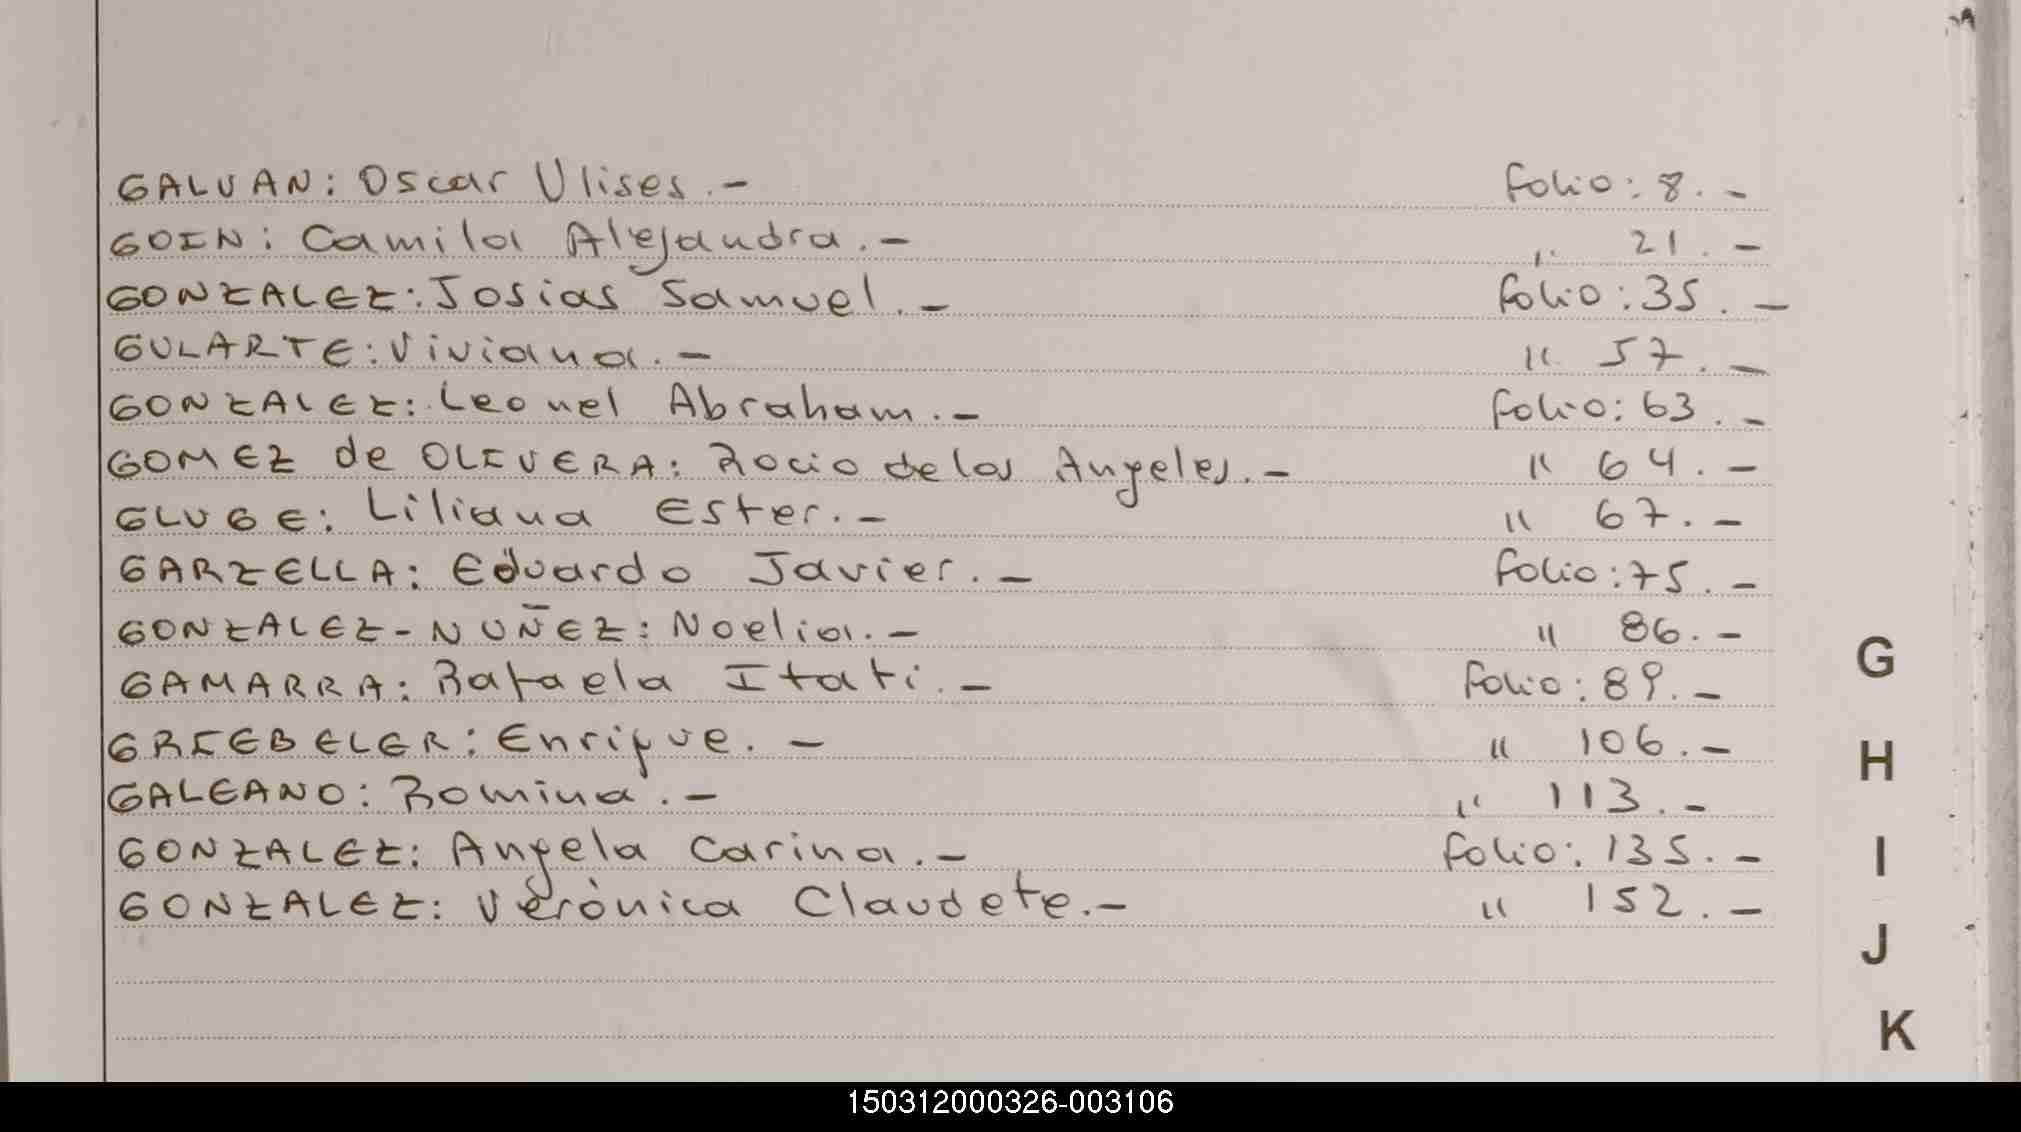 GALVAN: Oscar Ulises.- Folio: 8.-
GOIN: Camila Alejandra.- " 21.-
GONZALEZ: Josias Samuel.- Folio: 35.-
GULARTE: Viviana.- " 57.-
GONZALEZ: Leonel Abraham.- Folio: 63.-
GOMEZ de OLIVERA: Rocio de los Angeles.- " 64.-
GLUGE: Liliana Ester.- " 67.-
GARZELLA: Eduardo Javier.- Folio: 75.-
GONZALEZ-NUÑEZ: Noelia.- " 86.-
GAMARRA: Rafaela Itati.- Folio: 89.-
GRIEBELER: Enrique.- " 106.-
GALEANO: Romina.- " 113.-
GONZALEZ: Angela Carina.- Folio: 135.-
GONZALEZ: Verònica Claudete.- " 152.-
G
H
I
J
K
150312000326-003106